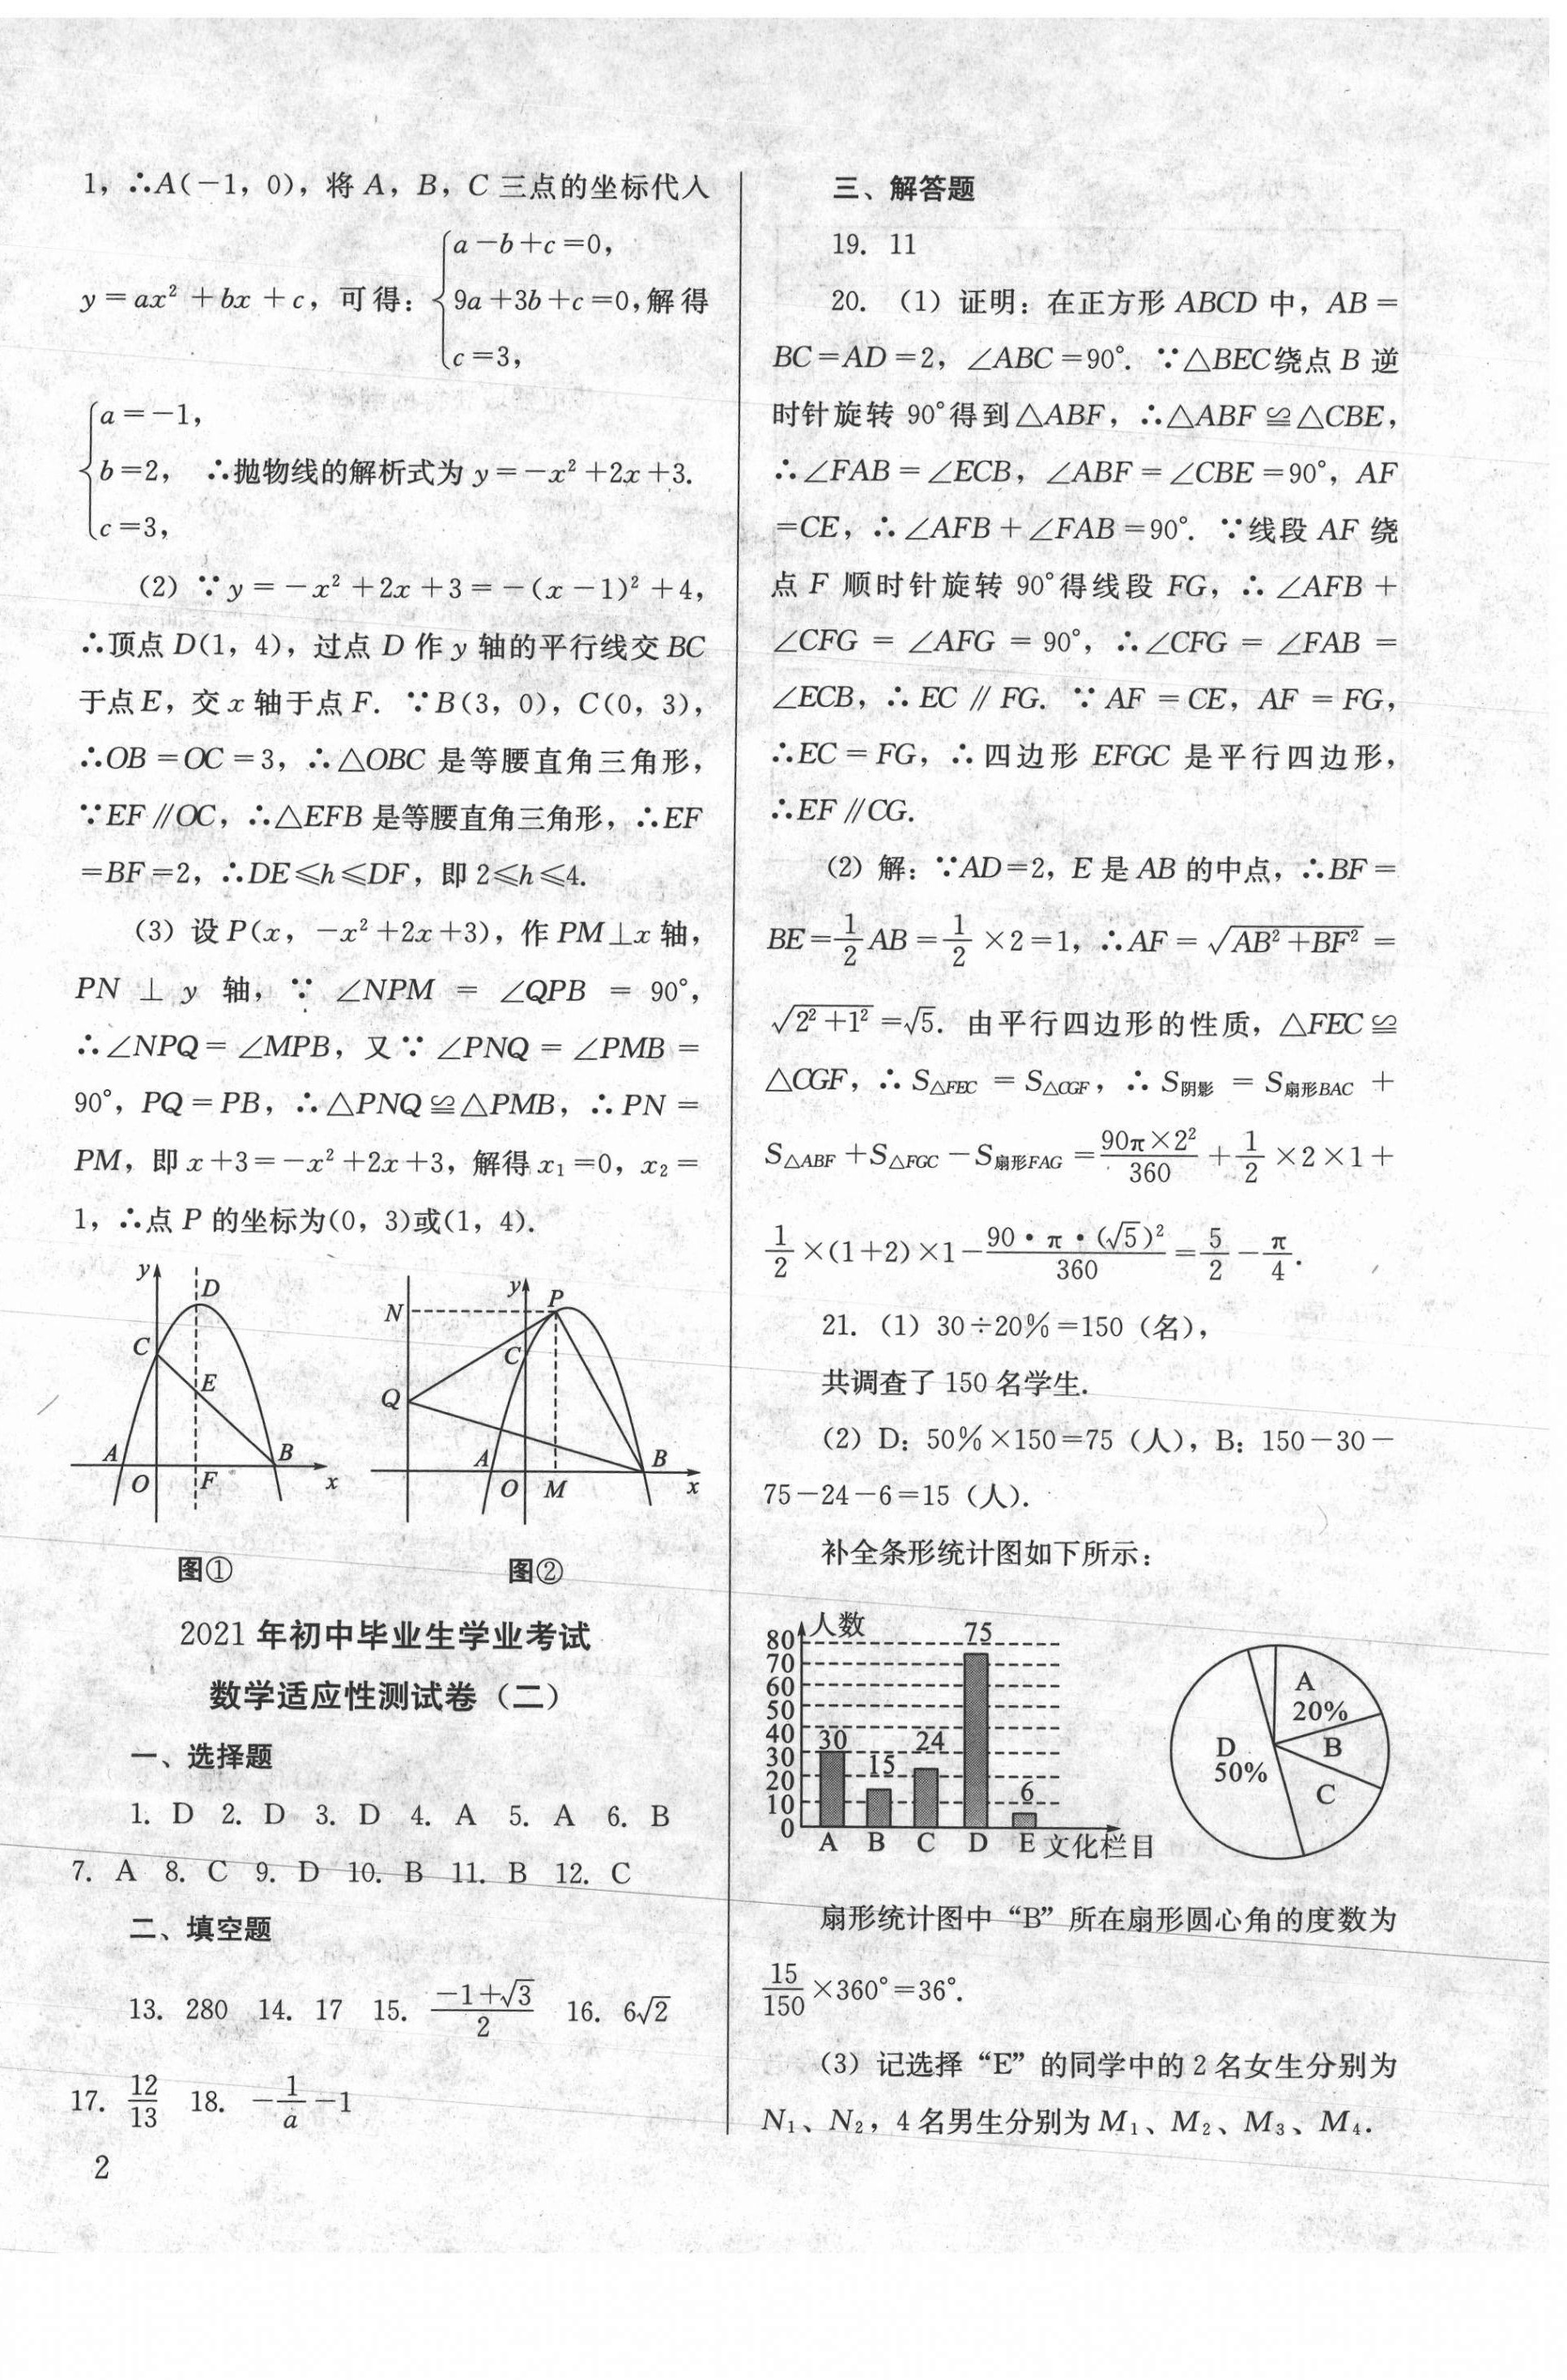 1，∴A(−1，0)，将 A，B，C 三点的坐标代入
a−b+c=0，
y=ax²+bx+c，可得：9a+3b+c=0，解得
c=3，
a=−1，
b=2，∴抛物线的解析式为 y=−x²+2x+3.
c=3，
(2) ∵y=−x²+2x+3=−(x−1)²+4，
∴顶点 D(1，4)，过点 D 作 y 轴的平行线交 BC
于点 E，交 x 轴于点 F. ∵B(3，0)，C(0，3)，
∴OB=OC=3，∴△OBC 是等腰直角三角形，
∵EF∥OC，∴△EFB 是等腰直角三角形，∴EF
=BF=2，∴DE⩽h⩽DF，即 2⩽h⩽4.
(3) 设 P(x，−x²+2x+3)，作 PM⊥x 轴，
PN⊥y 轴，∵∠NPM=∠QPB=90°，
∴∠NPQ=∠MPB，又∵∠PNQ=∠PMB=
90°，PQ=PB，∴△PNQ≌△PMB，∴PN=
PM，即 x+3=−x²+2x+3，解得 x₁=0，x₂=
1，∴点 P 的坐标为(0，3)或(1，4).
y D C E A O F B x
N y P C Q A O M B x
图① 图②
2021 年初中毕业生学业考试
数学适应性测试卷（二）
一、选择题
1. D 2. D 3. D 4. A 5. A 6. B
7. A 8. C 9. D 10. B 11. B 12. C
二、填空题
13. 280 14. 17 15. (−1+√3)/2 16. 6√2
17. 12/13 18. −1/a−1
2
三、解答题
19. 11
20. （1）证明：在正方形 ABCD 中，AB=
BC=AD=2，∠ABC=90°. ∵△BEC绕点 B 逆
时针旋转 90°得到△ABF，∴△ABF≌△CBE，
∴∠FAB=∠ECB，∠ABF=∠CBE=90°，AF
=CE，∴∠AFB+∠FAB=90°. ∵线段 AF 绕
点 F 顺时针旋转 90°得线段 FG，∴∠AFB+
∠CFG=∠AFG=90°，∴∠CFG=∠FAB=
∠ECB，∴EC∥FG. ∵AF=CE，AF=FG，
∴EC=FG，∴四边形 EFGC 是平行四边形，
∴EF∥CG.
(2) 解：∵AD=2，E 是 AB 的中点，∴BF=
BE=1/2 AB=1/2×2=1，∴AF=√(AB²+BF²)=
√(2²+1²)=√5. 由平行四边形的性质，△FEC≌
△CGF，∴S△FEC=S△CGF，∴S阴影=S扇形BAC+
S△ABF+S△FGC−S扇形FAG=(90π×2²)/360+1/2×2×1+
1/2×(1+2)×1−(90·π·(√5)²)/360=5/2−π/4.
21. （1）30÷20%=150（名），
共调查了 150 名学生.
（2）D：50%×150=75（人），B：150−30−
75−24−6=15（人）.
补全条形统计图如下所示：
人数
80 70 60 50 40 30 20 10 0
30 15 24 75 6
A B C D E 文化栏目
A 20% B C D 50%
扇形统计图中“B”所在扇形圆心角的度数为
15/150×360°=36°.
（3）记选择“E”的同学中的 2 名女生分别为
N₁、N₂，4 名男生分别为 M₁、M₂、M₃、M₄.